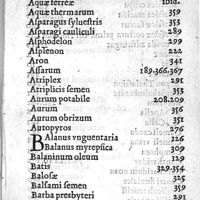 Aquæ terreæ ibid.
Aquæ thermarum 359
Asparagus sylueſtris 353
Asparagi cauliculi 289
Asphodelon 299
Asplenon 222
Aron 341
Aſſarum 189.366.367
Atriplex 291
Atriplicis ſemen 353
Aurum potabile 208.209
Aurum 356
Aurum obrizum 351
Autopyros 276
Balanus vnguentaria 126
Balanus myrepſica 309
Balaninum oleum 129
Batis 329.354
Baloſæ 325
Balſami ſemen 359
Barba presbyteri 291